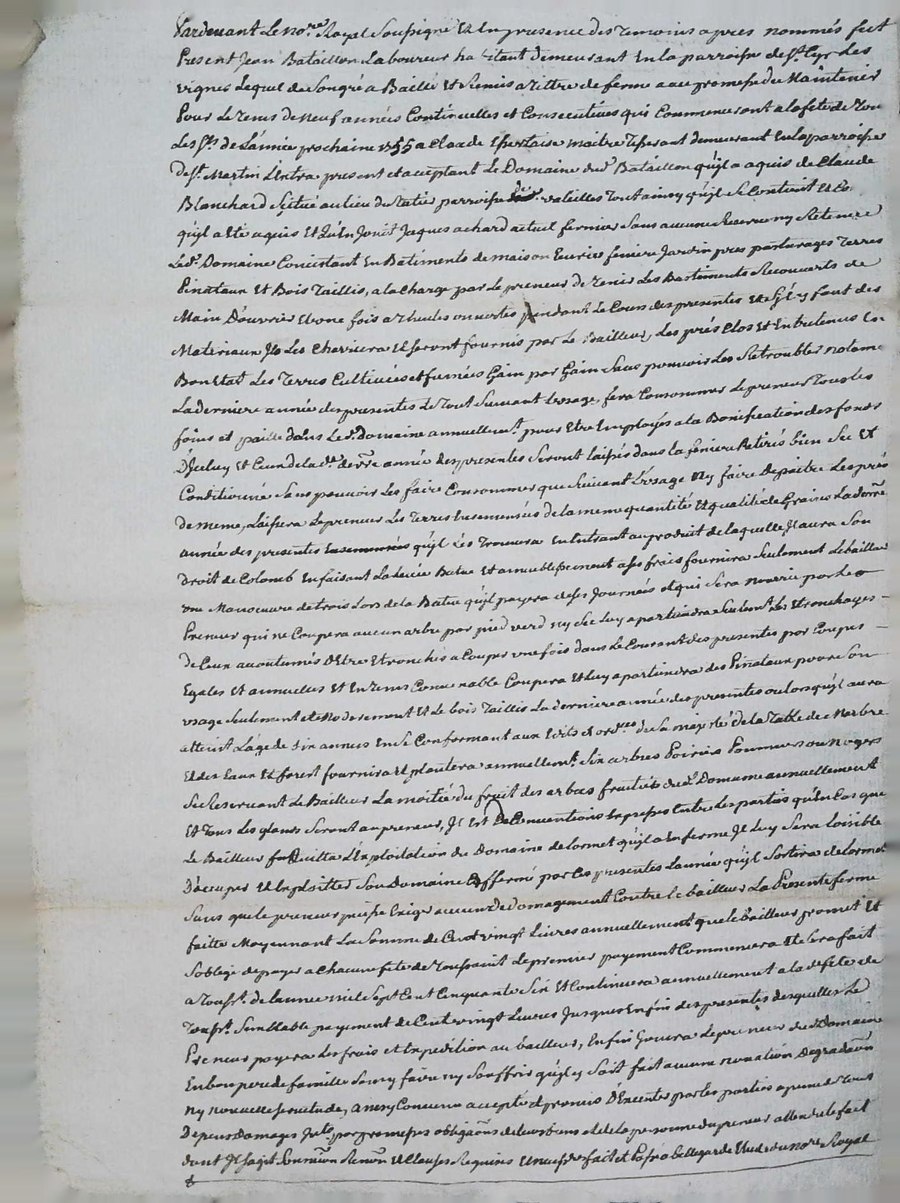 Pardevant Le no.re Royal Soussigné Et En presence des Temoins apres nommés fut
Present Jean Bataillon Laboureur habitant demeurant En la parroisse de S.t Cyr Les
vignes Lequel de Son gré a Baillé Et Remis a Tittre de ferme avec promesse de Maintenir
Pour Le Tems de Neuf années Continuelles et Consecutives qui Commenceront a la fete de Tou
Les S.ts de L'année prochaine 1755 a Claude maitre Tisserant demeurant En la parroisse
De S.t Martin Lestra present et acceptant Le Domaine dud Bataillon qu'il a aquis de Claude
Blanchard Scitué au lieu du parroisse de valeilles Tout ainsy qu'il Se Contient Et Co
qu'il a eté aquis Et qu'en Jouit Jaques achard actuel fermier Sans aucune Reserve ny Retenue
Led. Domaine Concistant En Batiments de maison Ecuries feniere Jardin pres pasturages Terres
Pinateaux Et Bois Taillis, a la Charge par Le preneur de Tenir Les Bastiments Recouverts de
Main D'ouvrier Et une fois a Thuiles ouvertes pendant Le Cours des presentes Et S'il y faut des
Materiaux Il Les Charriera Et Seront fournis par Le Bailleur, Les prés Clos Et En
Bon Etat Les Terres Cultivées et fumées Gain par Gain Sans pouvoir Les Retroubler notame
La derniere année des presentes Le Tout Suivant L'usage, fera Consommer Le preneur Tous Les
foins et paille dans Led. Domaine annuellem.t pour Etre Employés a la Bonification des fonds
D'Iceluy Et Ceux de lad. der.re année des presentes Seront laissés dans la feniere Retirés bien Sec Et
Conditionnés Sans pouvoir Les faire Consommer que Suivant L'usage Ny faire Depaitre Les prés
de meme, Laissera Le preneur Les Terres Ensemencées de la meme quantité Et qualité de Grains La derre
année des presentes qu'il Les Trouvera En Entrant au produit de laquelle Il aura Son
Droit de Colomb En faisant La Levée Batue Et a Ses frais fournira Seulement Le bailleur
une Manoeuvre de trois Lors de la Batue qu'il payera de Ses Journées et qui Sera nourrie par Le
Preneur qui ne Coupera aucun arbre par pied verd ny Sec Luy apartiendra Seulem.t Les Etronchages
de Ceux accoutumés D'Etre Etronchés a Couper une fois dans Le Courant des presentes par Coupes
Egales Et annuelles Et En Tems Convenable Coupera Et Luy apartiendra des Pinateaux pour Son
usage Seulement et Moderement Et Le bois Taillis La derniere année des presentes ou lorsqu'il aura
atteint L'age de Six années En Se Conformant aux Edits et ord.ces de Sa majesté de la Table de Marbre
Et des Eaux Et forest fournira Et plantera annuellem.t Six arbres Poiriers Pommiers ou Noyers
Se Reservant Le Bailleur La moitié du fruit des arbres fruitiers dud. Domaine annuellement
Et Tous Les glands Seront au preneur, Il Est De Conventions Expresses Entre Les parties qu'En Cas que
Le Bailleur quitta L'Exploitation du Domaine de lormet qu'il a En ferme Il Luy Sera loisible
D'occuper Et Exploitter Son Domaine affermé par Ces presentes L'année qu'il Sortira de Lormet
Sans que le preneur puisse Exiger aucun Dedomagement Contre le bailleur La Presente ferme
faitte Moyennant La Somme de Cent vingt Livres annuellement que le bailleur promet Et
S'oblige de payer a Chacune fete de Toussaint Le premier payement Commencera Et Sera fait
a Touss.t de l'année mil Sept Cent Cinquante Six Et Continuera annuellement a lad fete de
Touss.t Semblable payement de Cent vingt Livres Jusques En fin des presentes desquelles Le
Preneur payera Les frais et Expedition au bailleur, Enfin Jouira Le preneur dud Domaine
En bon pere de famille Sans y faire ny Souffrir qu'il y Soit fait aucune novation Degradaon
Ny nouvelle Servitude, ainsy Convenu accepté et promis D'Executer par les parties a peine de Tous
Depens Domages par promesses obligaons de leurs biens et de la personne du preneur attendu le fait
dont Il Sagit Renon Et Clauses Requises fait et Passé a bellegarde Etude du no.re Royal